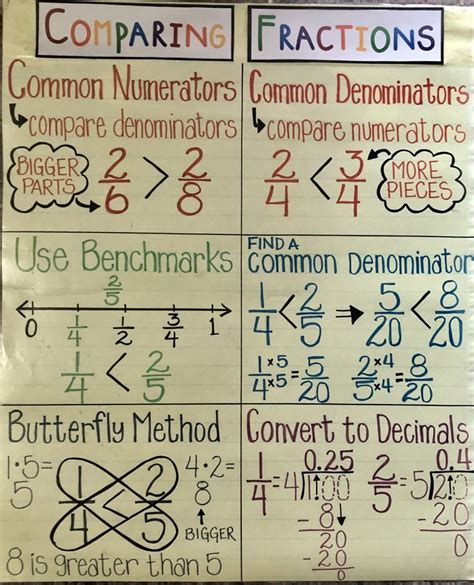 COMPARING FRACTIONS
Common Numerators
compare denominators
BIGGER
PARTS
2/6 > 2/8
Common Denominators
compare numerators
2/4 < 3/4
MORE
PIECES
Use Benchmarks
2/5
0 1/4 1/2 3/4 1
1/4 < 2/5
FIND A
Common Denominator
1/4 < 2/5 → 5/20 < 8/20
1×5/4×5 = 5/20 2×4/5×4 = 8/20
Butterfly Method
1·5=
5
1/4 < 2/5
4·2=
8
↑
BIGGER
8 is greater than 5
Convert to Decimals
0.25
1/4 = 4 100
-8
20
-20
0
0.4
2/5 = 5 2.0
-20
0